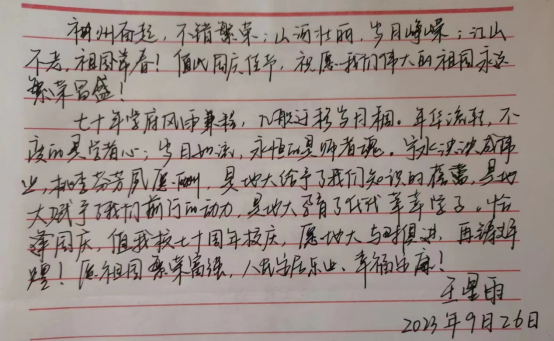 神州奋起，不错繁荣；山河壮丽，岁月峥嵘；江山
不老，祖国常春！值此国庆佳节，祝愿我们伟大的祖国永远
繁荣昌盛！
七十年学府风雨兼程，几般迁移岁月稠。年华流转，不
变的是学者心；岁月如流，永恒的是师者魂。
业，桃李芬芳夙愿酬，是地大给予了我们知识的底蕴，是地
大赋予了我们前行的动力，是地大孕育了代代莘莘学子。恰
逢国庆，值我校七十周年校庆，愿地大与时俱进，再铸辉
煌！愿祖国繁荣富强，人民安居乐业、幸福安康！
王星雨
2023年9月26日